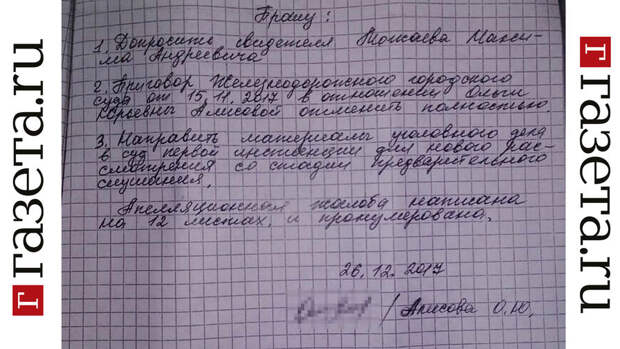 Г газета.ru
Прошу:
1. Допросить свидетеля Можаева Макси-
ма Андреевича
2. Приговор Железнодорожного городского
суда от 15.11.2017 в отношении Ольги
Юрьевны Алисовой отменить полностью.
3. Направить материалы уголовного дела
в суд первой инстанции для нового рас-
смотрения со стадии предварительного
слушания.
Апелляционная жалоба написана
на 12 листах, и пронумерована.
26.12.2017
/Алисова О.Ю.
Г газета.ru